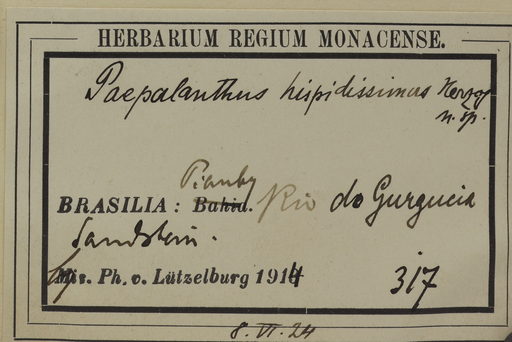 HERBARIUM REGIUM MONACENSE.
Paepalanthus hispidissimus Herzog
n. sp.
Piauhy
BRASILIA: Bahia. Rio do Gurgueia
Sandstein.
Mis. Ph. v. Lützelburg 1914 317
8. VI. 24